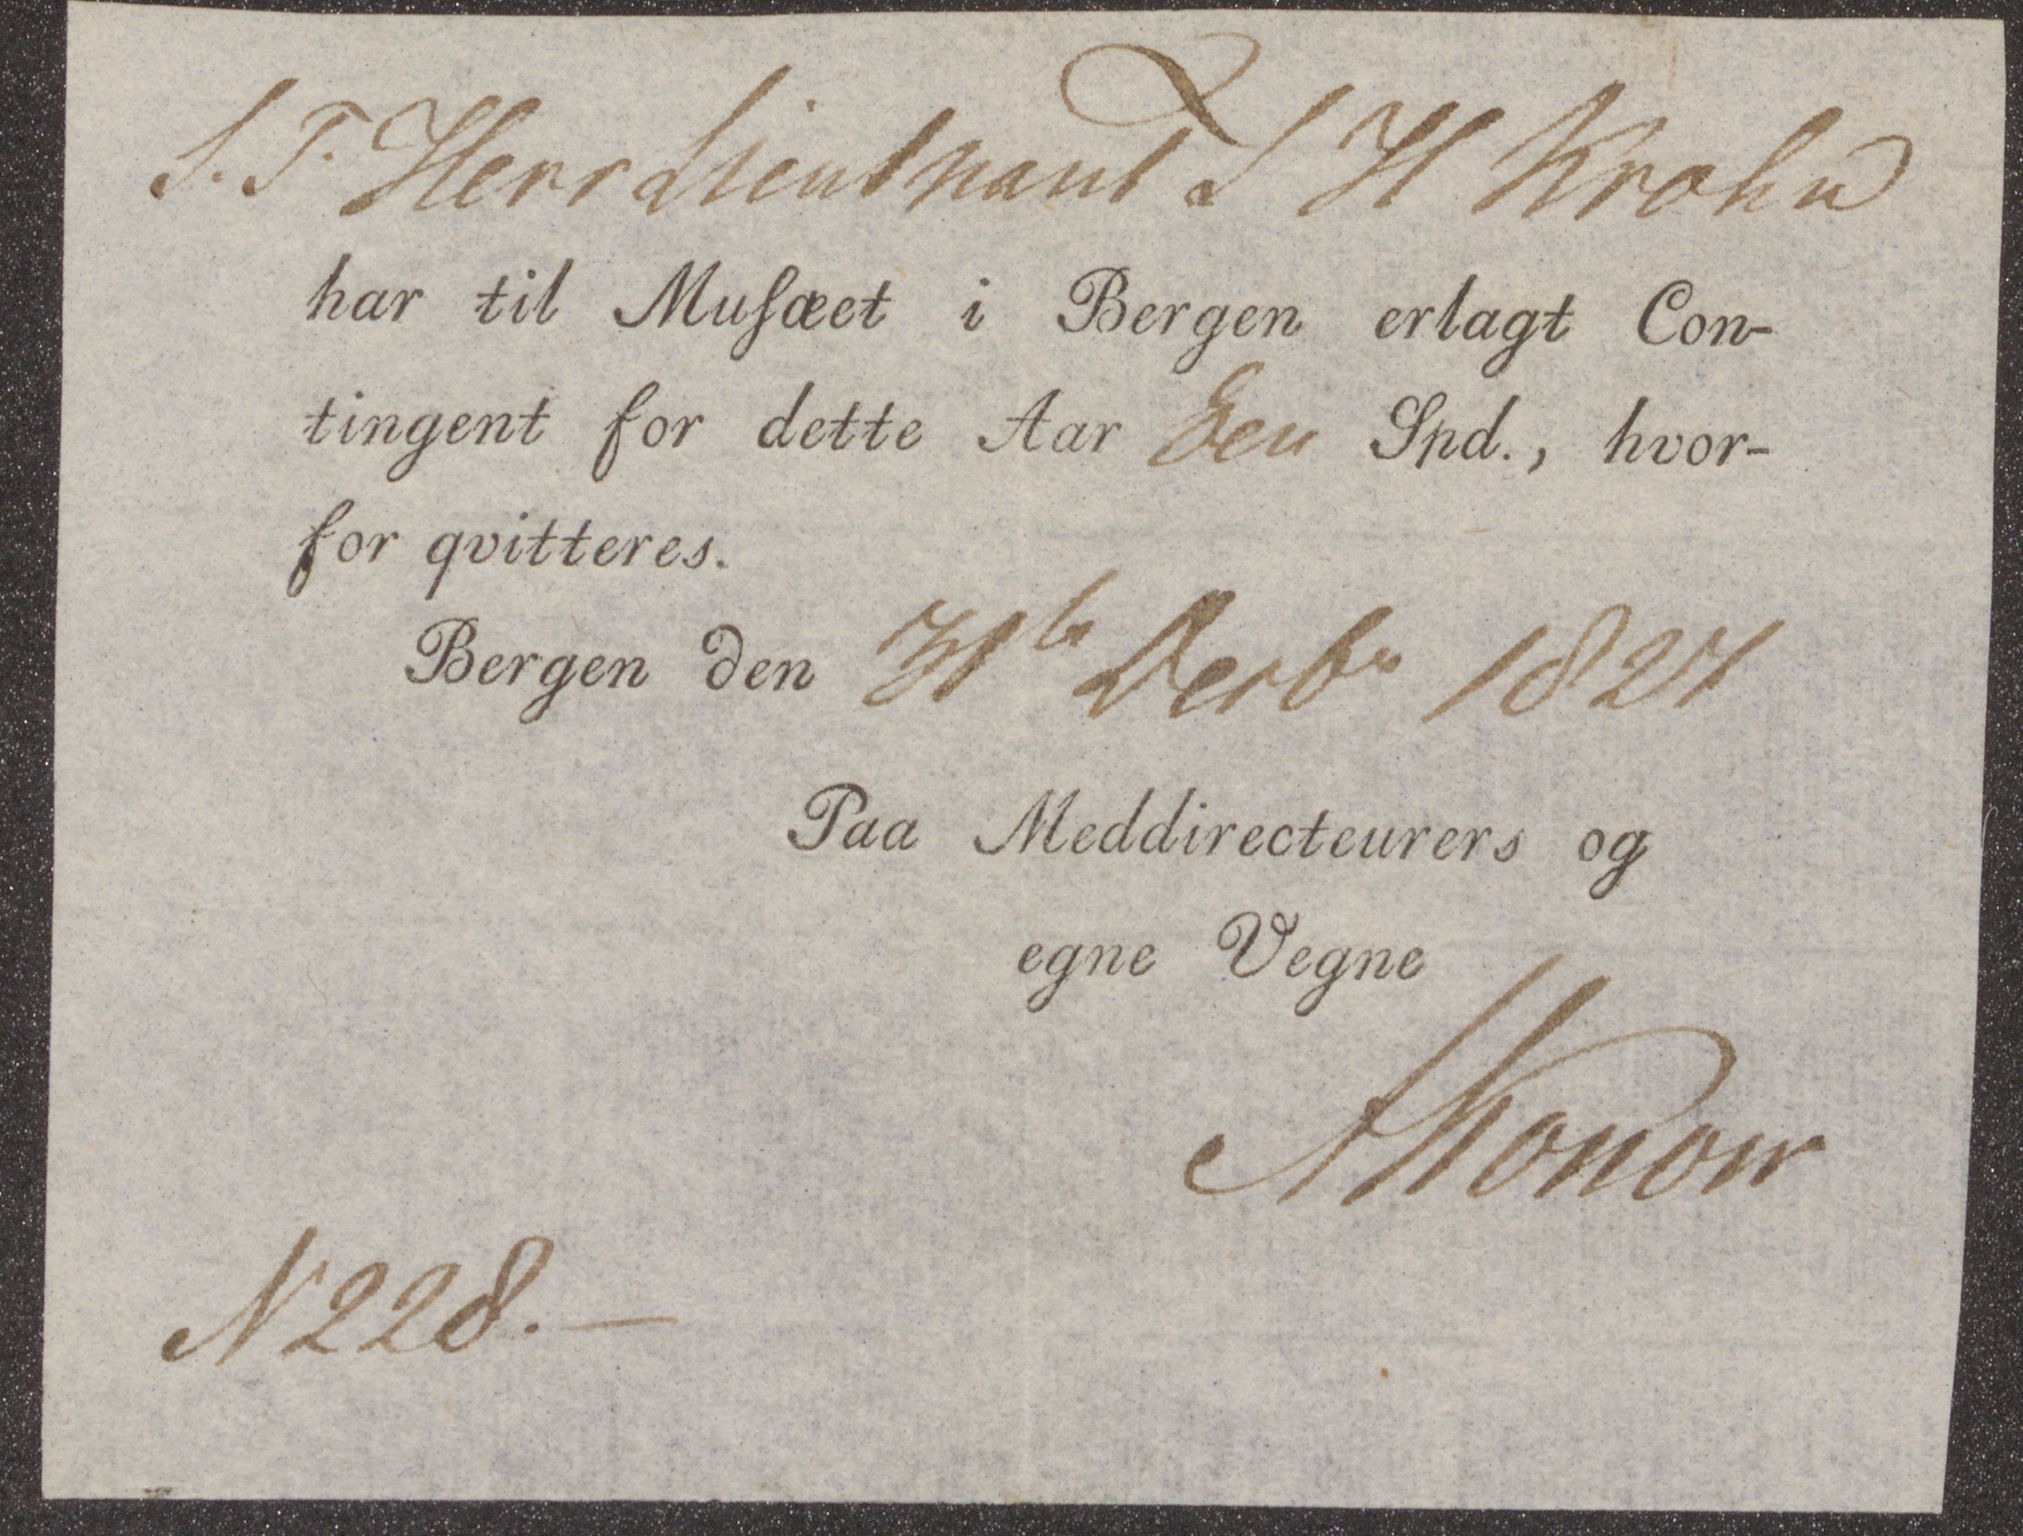 S. T. Herr Lieutnant S H Krohn
har til Muſæet i Bergen erlagt Con-
tingent for dette Aar Een Spd., hvor-
for qvitteres.
Bergen den 31te Decbr 1827
Paa Meddirecteurers og
egne Vegne
AKonow
N 228. —